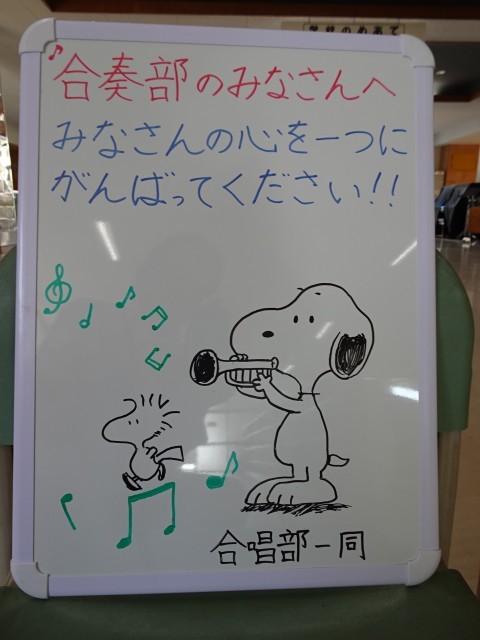 合奏部のみなさんへ
みなさんの心を一つに
がんばってください!!
合唱部一同